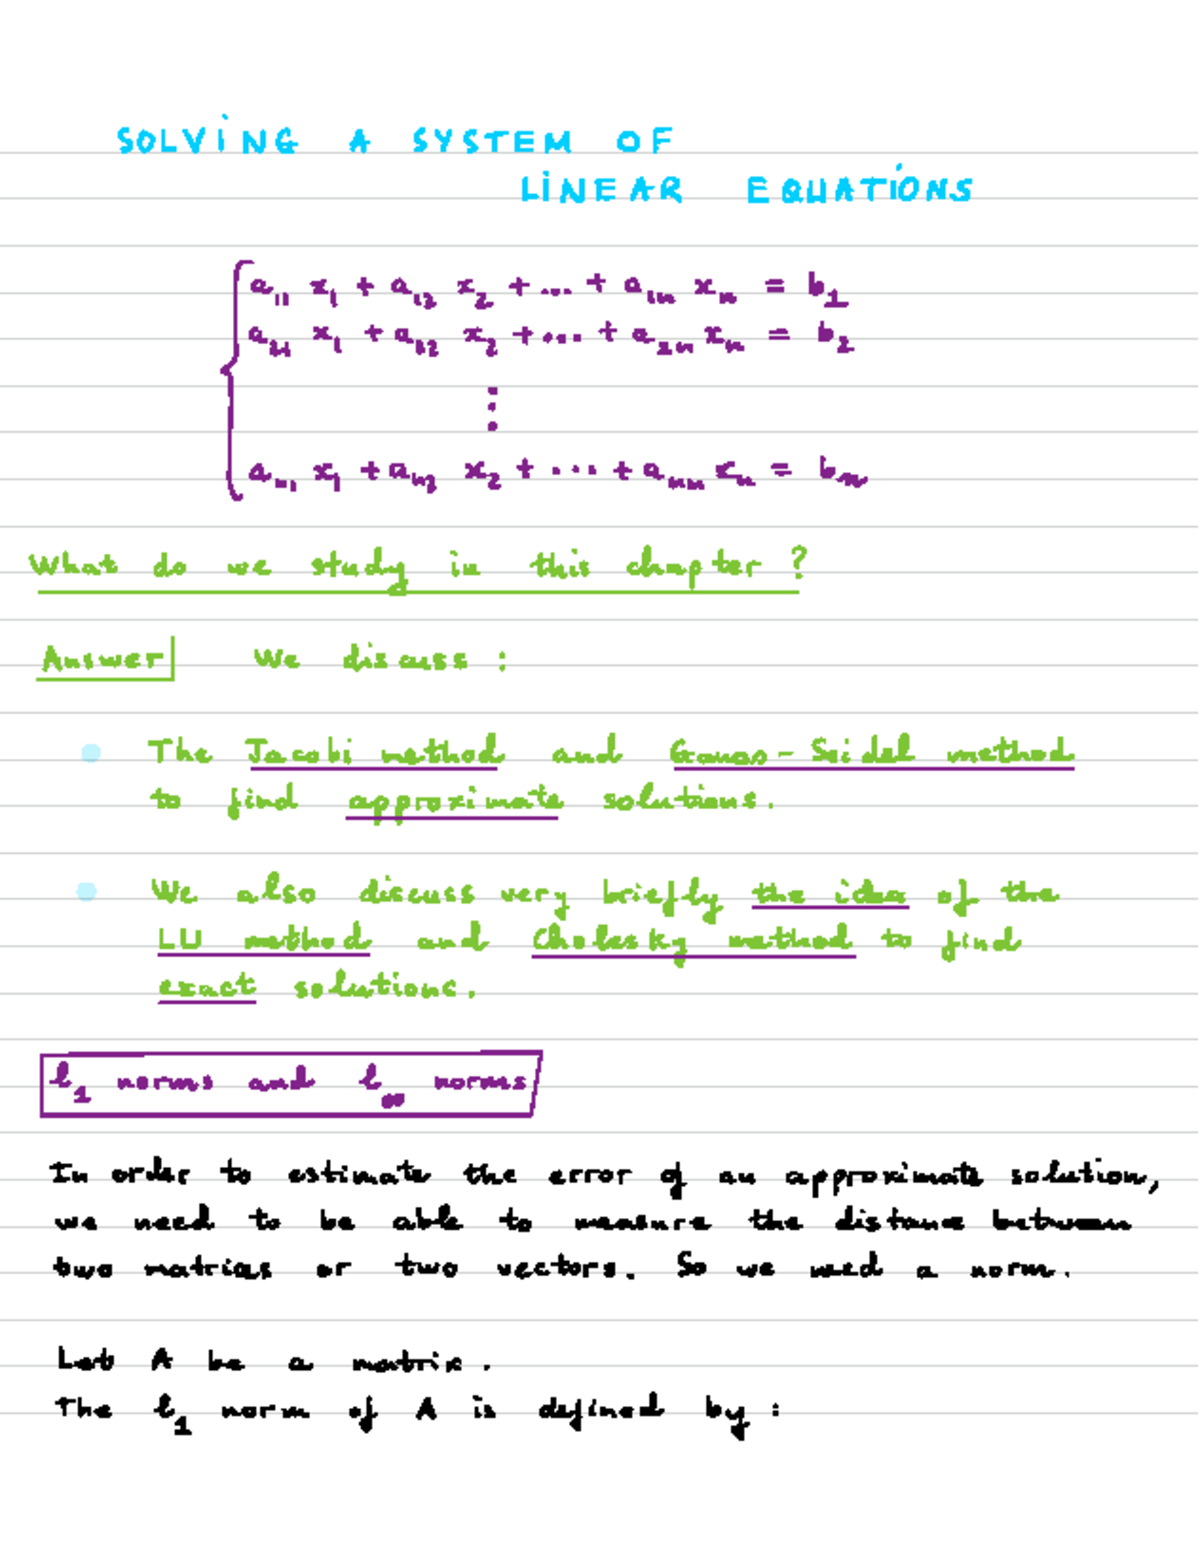 SOLVING A SYSTEM OF
LINEAR EQUATIONS
a₁₁ x₁ + a₁₂ x₂ + ... + a₁ₙ xₙ = b₁
a₂₁ x₁ + a₂₂ x₂ + ... + a₂ₙ xₙ = b₂
⋮
aₙ₁ x₁ + aₙ₂ x₂ + ... + aₙₙ xₙ = bₙ
What do we study in this chapter ?
Answer We discuss :
• The Jacobi method and Gauss-Seidel method
to find approximate solutions.
• We also discuss very briefly the idea of the
LU method and Cholesky method to find
exact solutions.
ℓ₁ norms and ℓ∞ norms
In order to estimate the error of an approximate solution,
we need to be able to measure the distance between
two matrices or two vectors. So we need a norm.
Let A be a matrix.
The ℓ₁ norm of A is defined by :